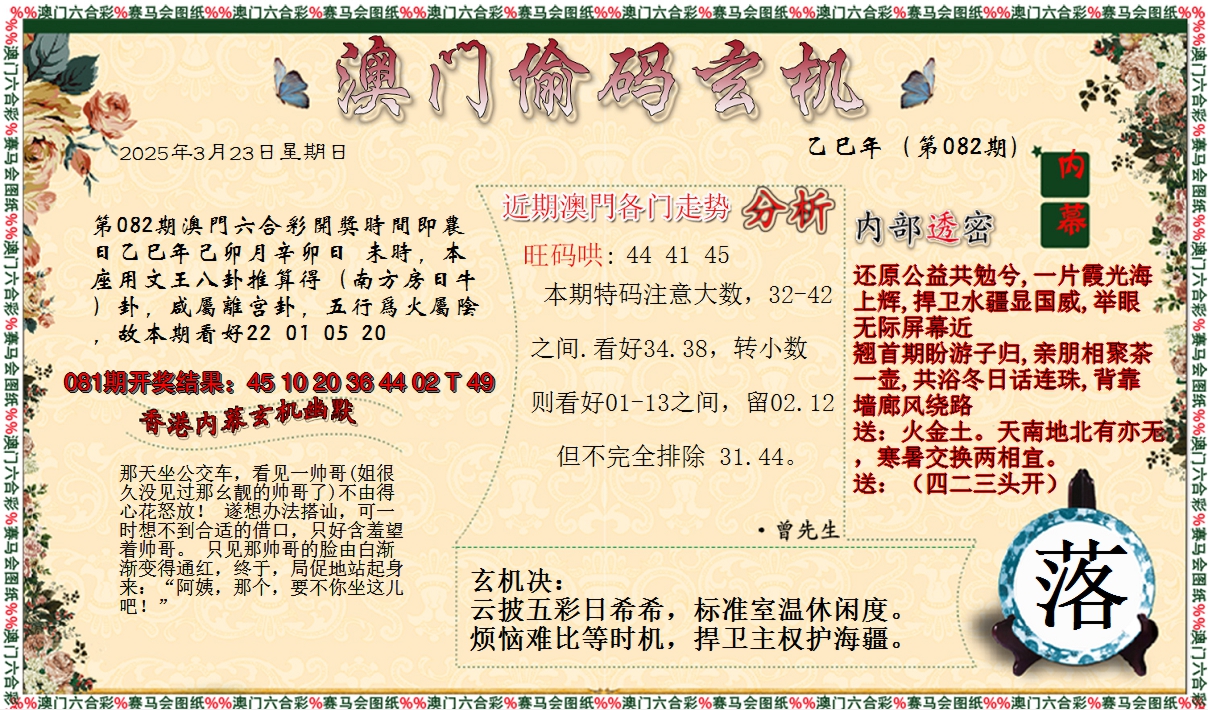 %%澳门六合彩%赛马会图纸%%澳门六合彩%赛马会图纸%%澳门六合彩%赛马会图纸%%澳门六合彩%赛马会图纸%%澳门六合彩%赛马会图纸%%澳门六合彩%赛马会图纸%%
澳门偷码玄机
2025年3月23日星期日
乙巳年（第082期）
内幕
第082期澳門六合彩開獎時間即農
日乙巳年己卯月辛卯日 未時，本
座用文王八卦推算得（南方房日牛
）卦，咸屬離宫卦，五行爲火屬陰
，故本期看好22 01 05 20
081期开奖结果：45 10 20 36 44 02 T 49
香港内幕玄机幽默
那天坐公交车，看见一帅哥(姐很
久没见过那幺靓的帅哥了)不由得
心花怒放！ 遂想办法搭讪，可一
时想不到合适的借口，只好含羞望
着帅哥。 只见那帅哥的脸由白渐
渐变得通红，终于，局促地站起身
来：“阿姨，那个，要不你坐这儿
吧！”
近期澳門各门走势 分析
旺码哄: 44 41 45
本期特码注意大数，32-42
之间.看好34.38，转小数
则看好01-13之间，留02.12
但不完全排除 31.44。
·曾先生
内部透密
还原公益共勉兮,一片霞光海
上辉,捍卫水疆显国威,举眼
无际屏幕近
翘首期盼游子归,亲朋相聚茶
一壶,共浴冬日话连珠,背靠
墙廊风绕路
送：火金土。天南地北有亦无
，寒暑交换两相宜。
送：（四二三头开）
玄机决：
云披五彩日希希，标准室温休闲度。
烦恼难比等时机，捍卫主权护海疆。
落
%%澳门六合彩%赛马会图纸%%澳门六合彩%赛马会图纸%%澳门六合彩%赛马会图纸%%澳门六合彩%赛马会图纸%%澳门六合彩%赛马会图纸%%澳门六合彩%赛马会图纸%%